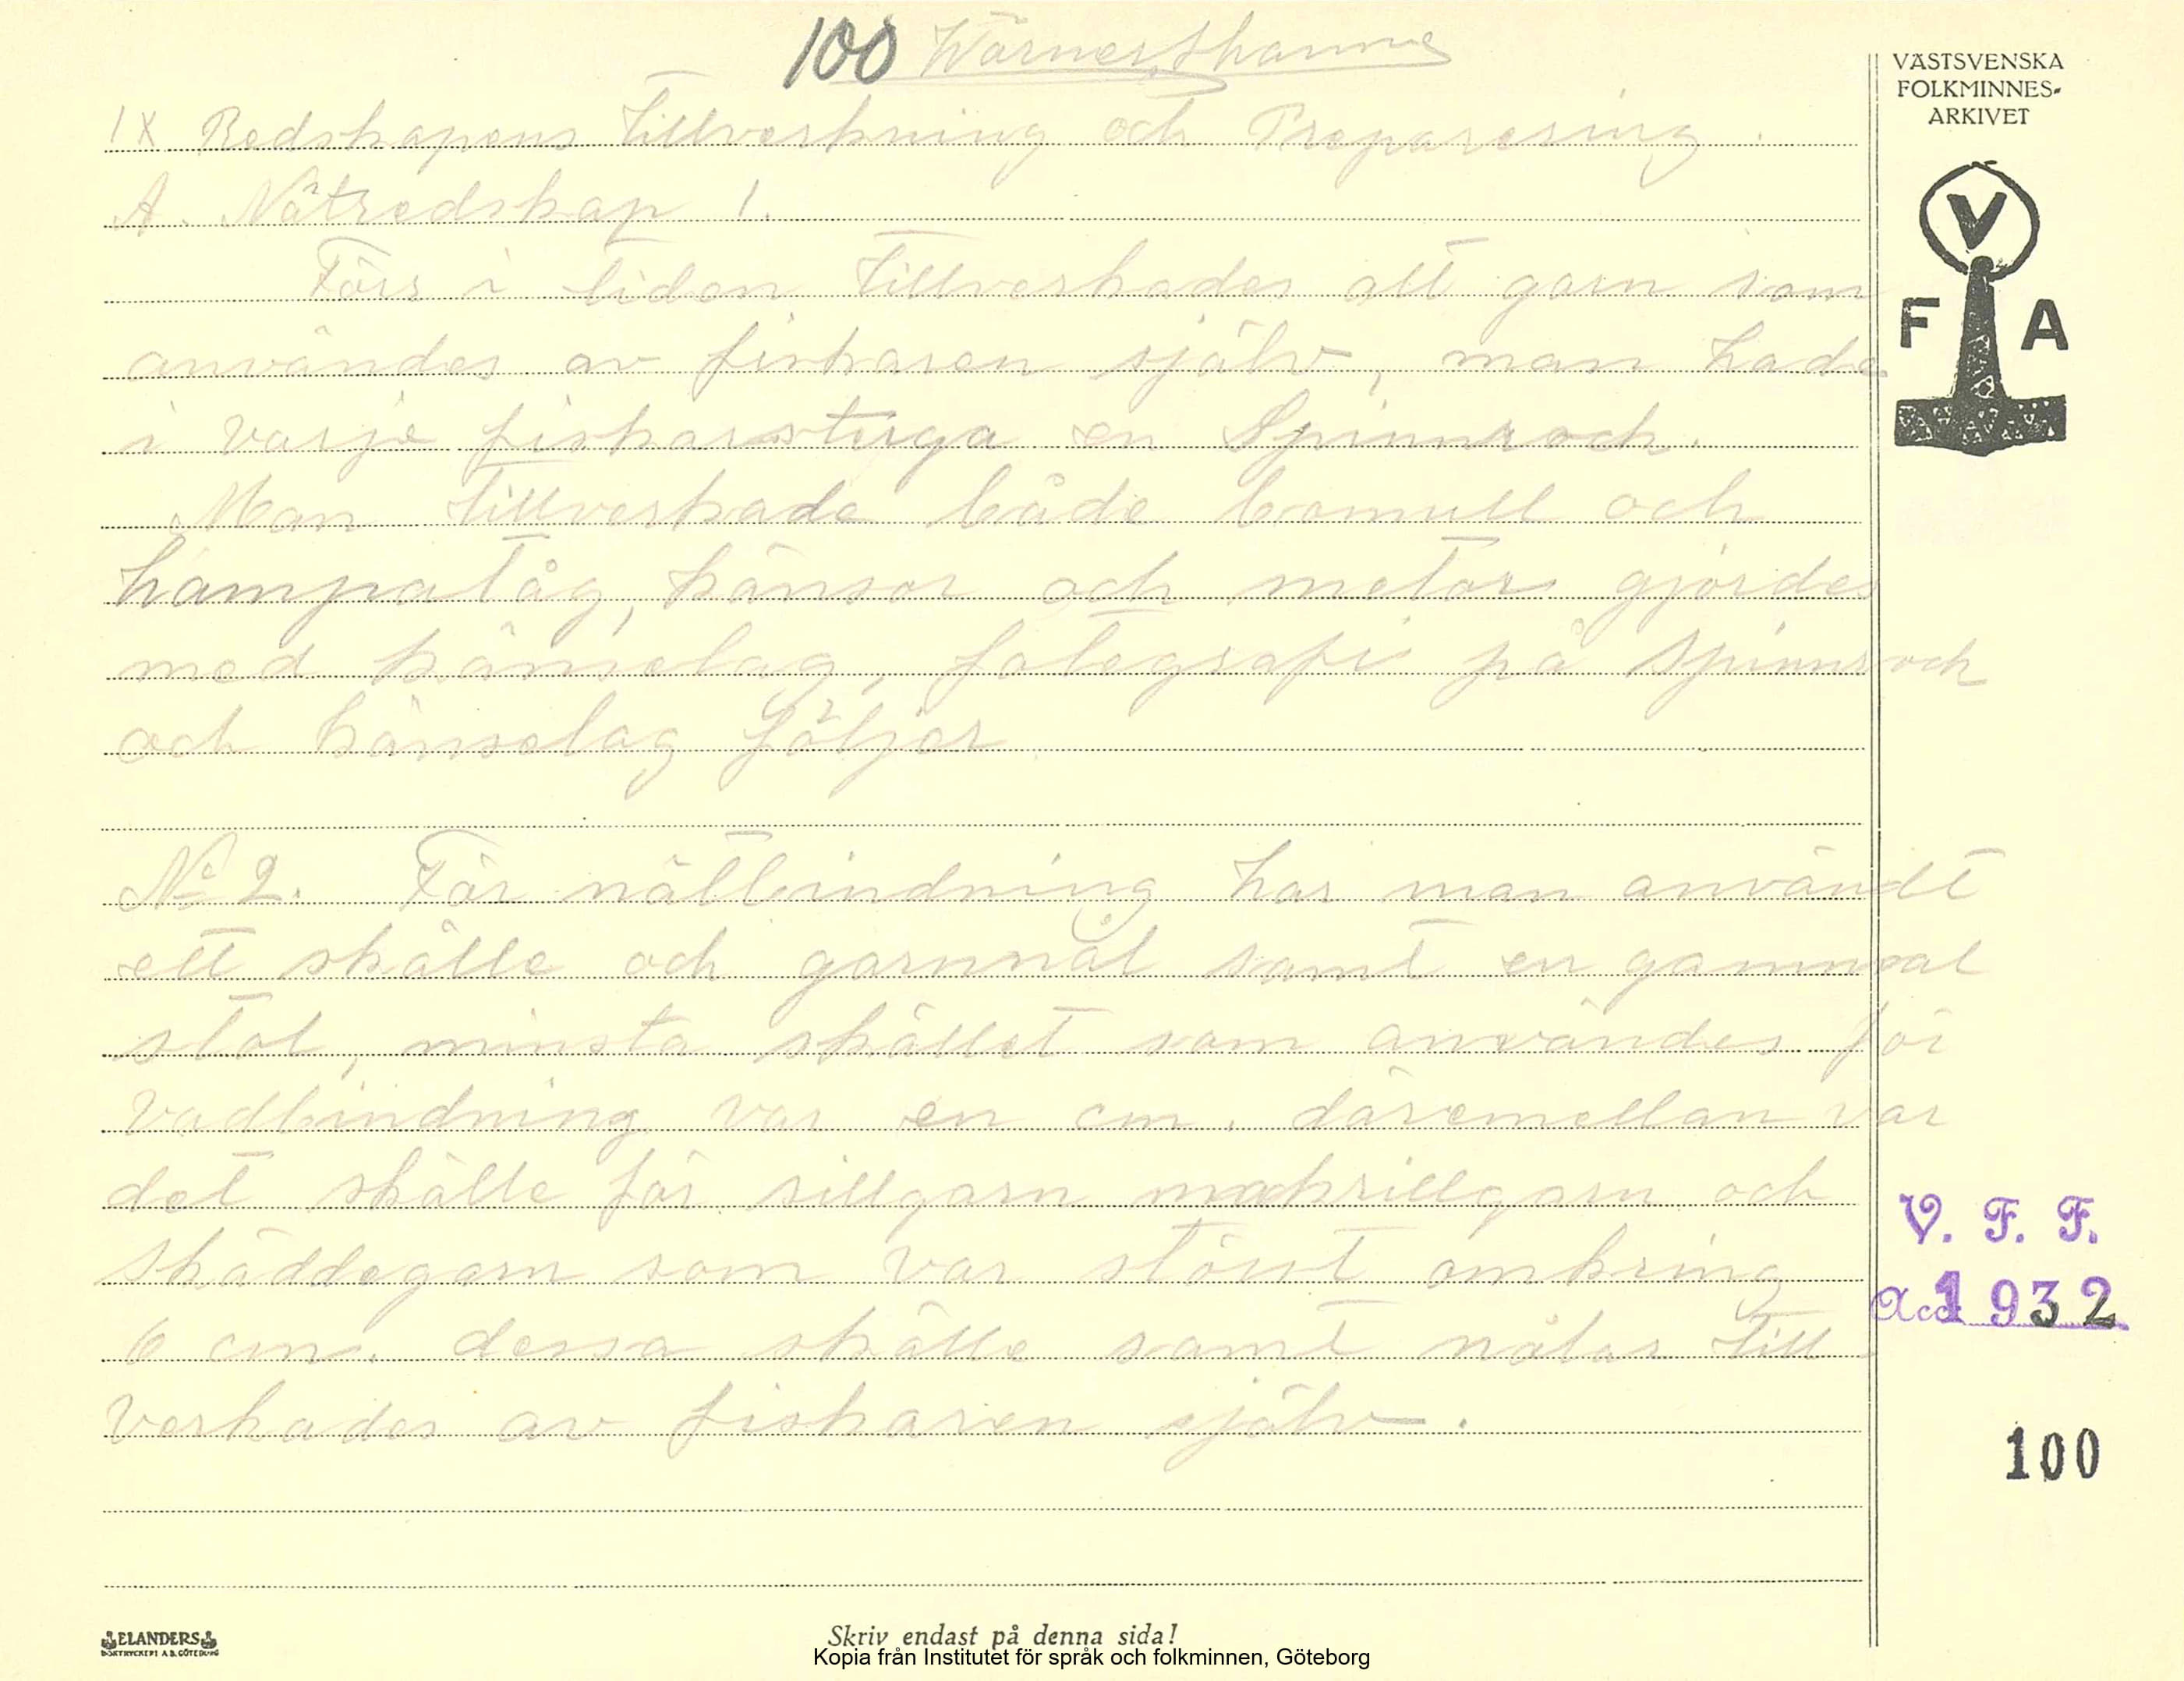 100 Wärnershamn
VÄSTSVENSKA
FOLKMINNES-
ARKIVET
V
F A
IX. Redskapens Tillverkning och Preparering.
A. Nätredskap 1.
Förr i tiden tillverkades allt garn som
användes av fiskaren själv, man hade
i varje fiskarstuga en Spinnrock.
Man tillverkade både bomull och
hampatåg, känsor och metar gjordes
med känselag, fotografi på Spinnrock
och känselag följer
No 2. För nätbindning har man användt
ett skälle och garnnål samt en gammal
stol, minsta skället som användes för
Vadbindning var en cm. däremellan var
det skälle för sillgarn makrillgarn och
Skäddegarn som var störst omkring
6 cm. dessa skälle samt nålar till
verkades av fiskaren själv.
V. F. F.
Acc 1932
100
ELANDERS
BOKTRYCKERI A.B. GÖTEBORG
Skriv endast på denna sida!
Kopia från Institutet för språk och folkminnen, Göteborg